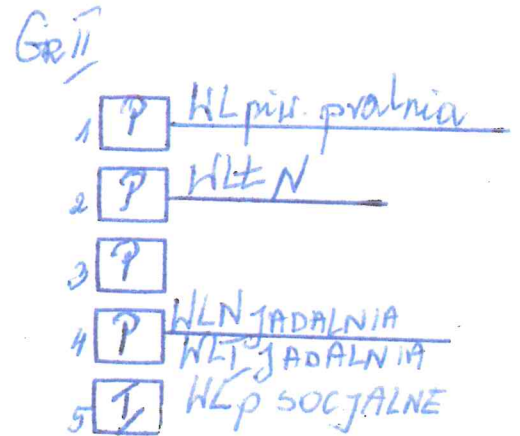 Gr II
1 P WL piw. pralnia
2 P WLŁ N
3 P
4 P WLN JADALNIA
WLT JADALNIA
5 I WLp SOCJALNE